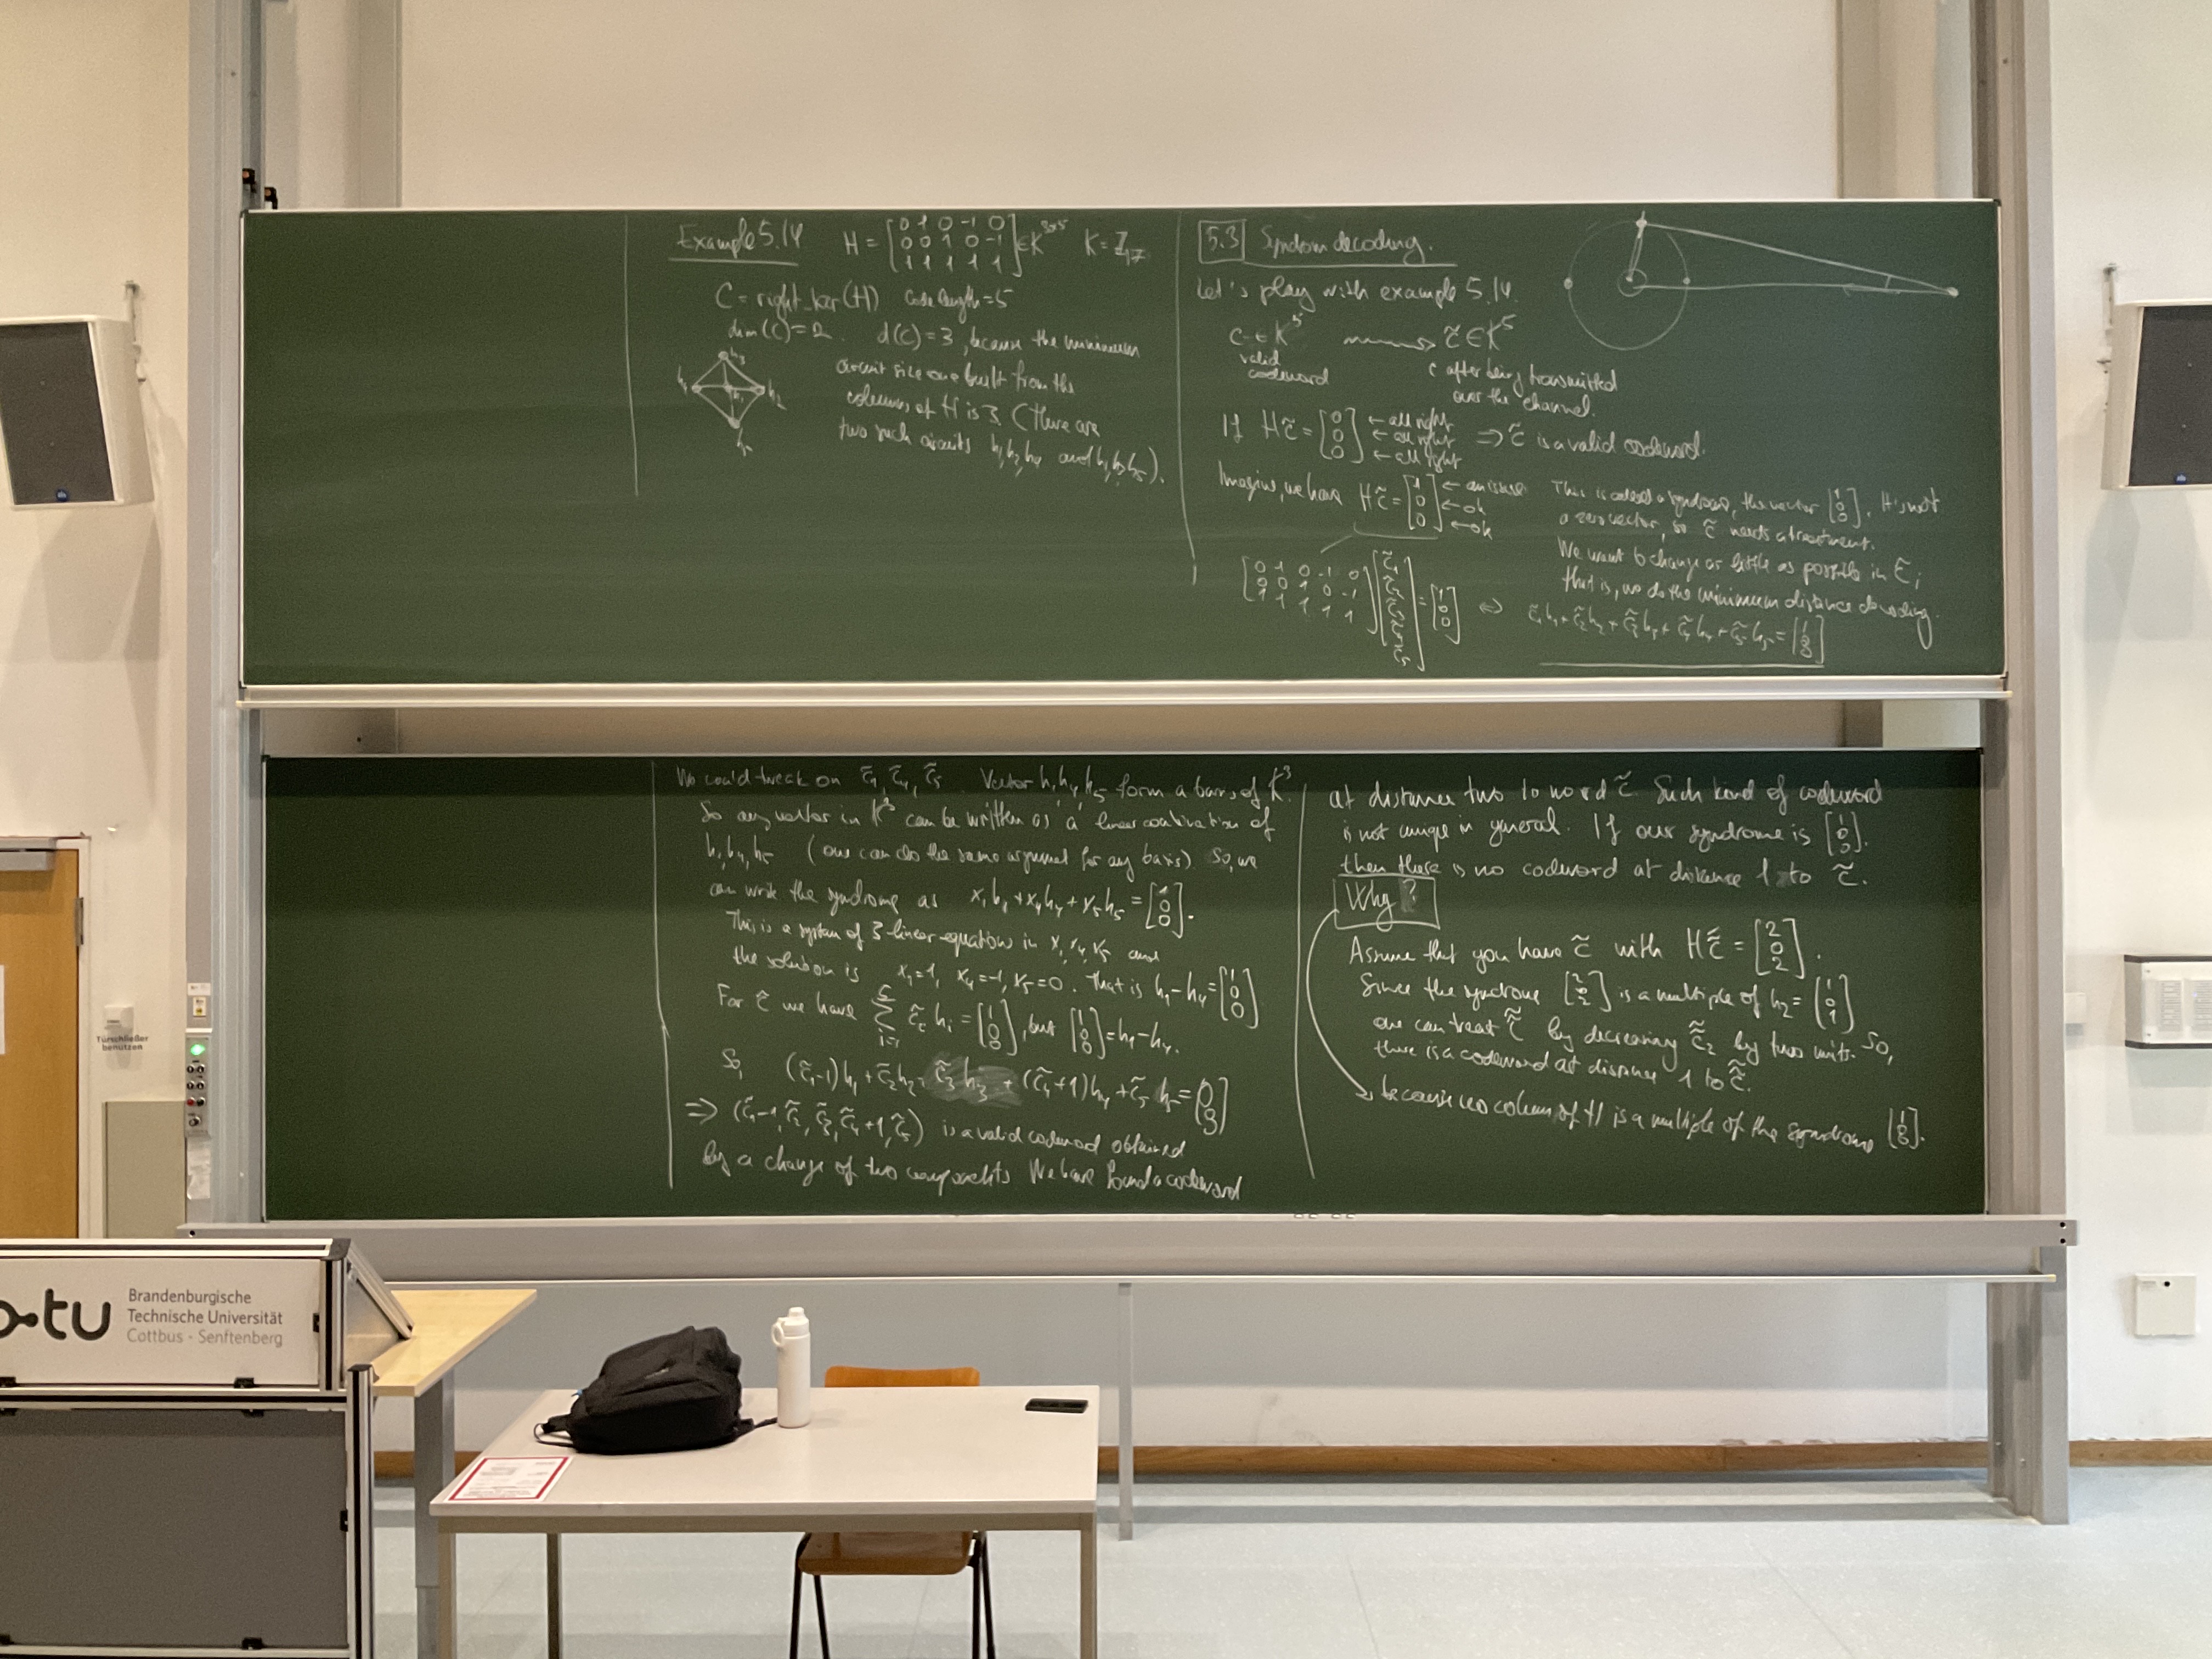 Example 5.14 H = [0 1 0 -1 0; 0 0 1 0 -1; 1 1 1 1 1] ∈ K^{3×5} K = Z_17
C = right_ker(H) code length = 5
dim(C) = 2. d(C) = 3, because the minimum
circuit size one built from the
columns of H is 3 (there are
two such circuits h1 h2 h4 and h1 h3 h5).
h3
h4 h1 h2
h5
5.3 Syndrom decoding.
Let's play with example 5.14.
c ∈ K^5 ⟶ c̃ ∈ K^5
valid
codeword
c after being transmitted
over the channel.
If Hc̃ = [0; 0; 0] ← all right ← all right ← all right ⇒ c̃ is a valid codeword.
Imagine, we have Hc̃ = [1; 0; 0] ← an issue ← ok ← ok
[0 1 0 -1 0; 0 0 1 0 -1; 1 1 1 1 1] [c̃1; c̃2; c̃3; c̃4; c̃5] = [1; 0; 0] ⇔ c̃1h1 + c̃2h2 + c̃3h3 + c̃4h4 + c̃5h5 = [1; 0; 0]
This is called a syndrome, the vector [1; 0; 0]. It's not
a zero vector, so c̃ needs a treatment.
We want to change as little as possible in c̃;
that is, we do the minimum distance decoding.
We could tweak on c̃1, c̃4, c̃5. Vector h1, h4, h5 form a basis of K^3.
So any vector in K^3 can be written as a linear combination of
h1, h4, h5 (one can do the same argument for any basis). So, we
can write the syndrome as x1h1 + x4h4 + x5h5 = [1; 0; 0].
This is a system of 3 linear equation in x1, x4, x5 and
the solution is x1=1, x4=-1, x5=0. That is h1 - h4 = [1; 0; 0]
For c̃ we have ∑_{i=1}^5 c̃i hi = [1; 0; 0], but [1; 0; 0] = h1 - h4.
So, (c̃1-1)h1 + c̃2h2 + c̃3h3 + (c̃4+1)h4 + c̃5h5 = [0; 0; 0]
⇒ (c̃1-1, c̃2, c̃3, c̃4+1, c̃5) is a valid codeword obtained
by a change of two components We have found a codeword
at distance two to word c̃. Such kind of codeword
is not unique in general. If our syndrome is [1; 0; 0].
then there is no codeword at distance 1 to c̃.
Why?
Assume that you have c̃ with Hc̃ = [2; 0; 2].
Since the syndrome [2; 0; 2] is a multiple of h2 = [1; 0; 1]
one can treat c̃ by decreasing c̃2 by two units. So,
there is a codeword at distance 1 to c̃.
because no column of H is a multiple of the syndrome [1; 0; 0].
Türschließer
benutzen
tu
Brandenburgische
Technische Universität
Cottbus - Senftenberg